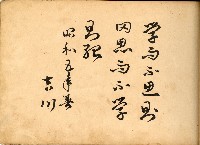 学而不思則
罔思而不学
則殆
昭和五年春
吉川